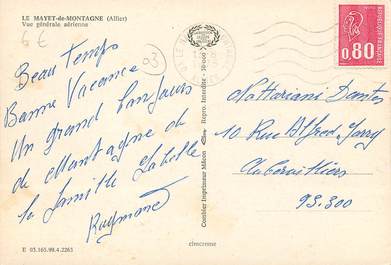 LE MAYET-de-MONTAGNE (Allier)
Vue générale aérienne
6 €
03
Beau Temps
Bonne Vacance
Un grand Bonjours
de Montagne de
la famille Labelle
Raymond
E 03.165.99.4.2263
Combier Imprimeur Mâcon
Repro. Interdite - 10-000
cimcrome
0,80
10 Rue Alfred Jarry
Aubervilliers
93.300